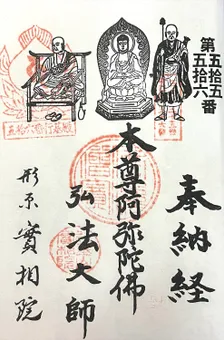 第五拾五番
五拾六番
奉納経
本尊阿弥陀佛
弘法大師
形原實相院